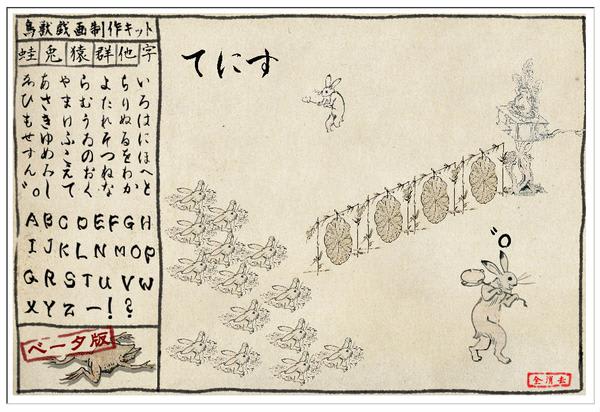 鳥獣戯画制作キット
蛙 兎 猿 群 他 字
いろはにほへと
ちりぬるをわか
よたれそつねな
らむうゐのおく
やまけふこえて
あさきゆめみし
ゑひもせすん゛。
A B C D E F G H
I J K L N M O P
Q R S T U V W
X Y Z ー ! ?
ベータ版
てにす
゛。
全消去